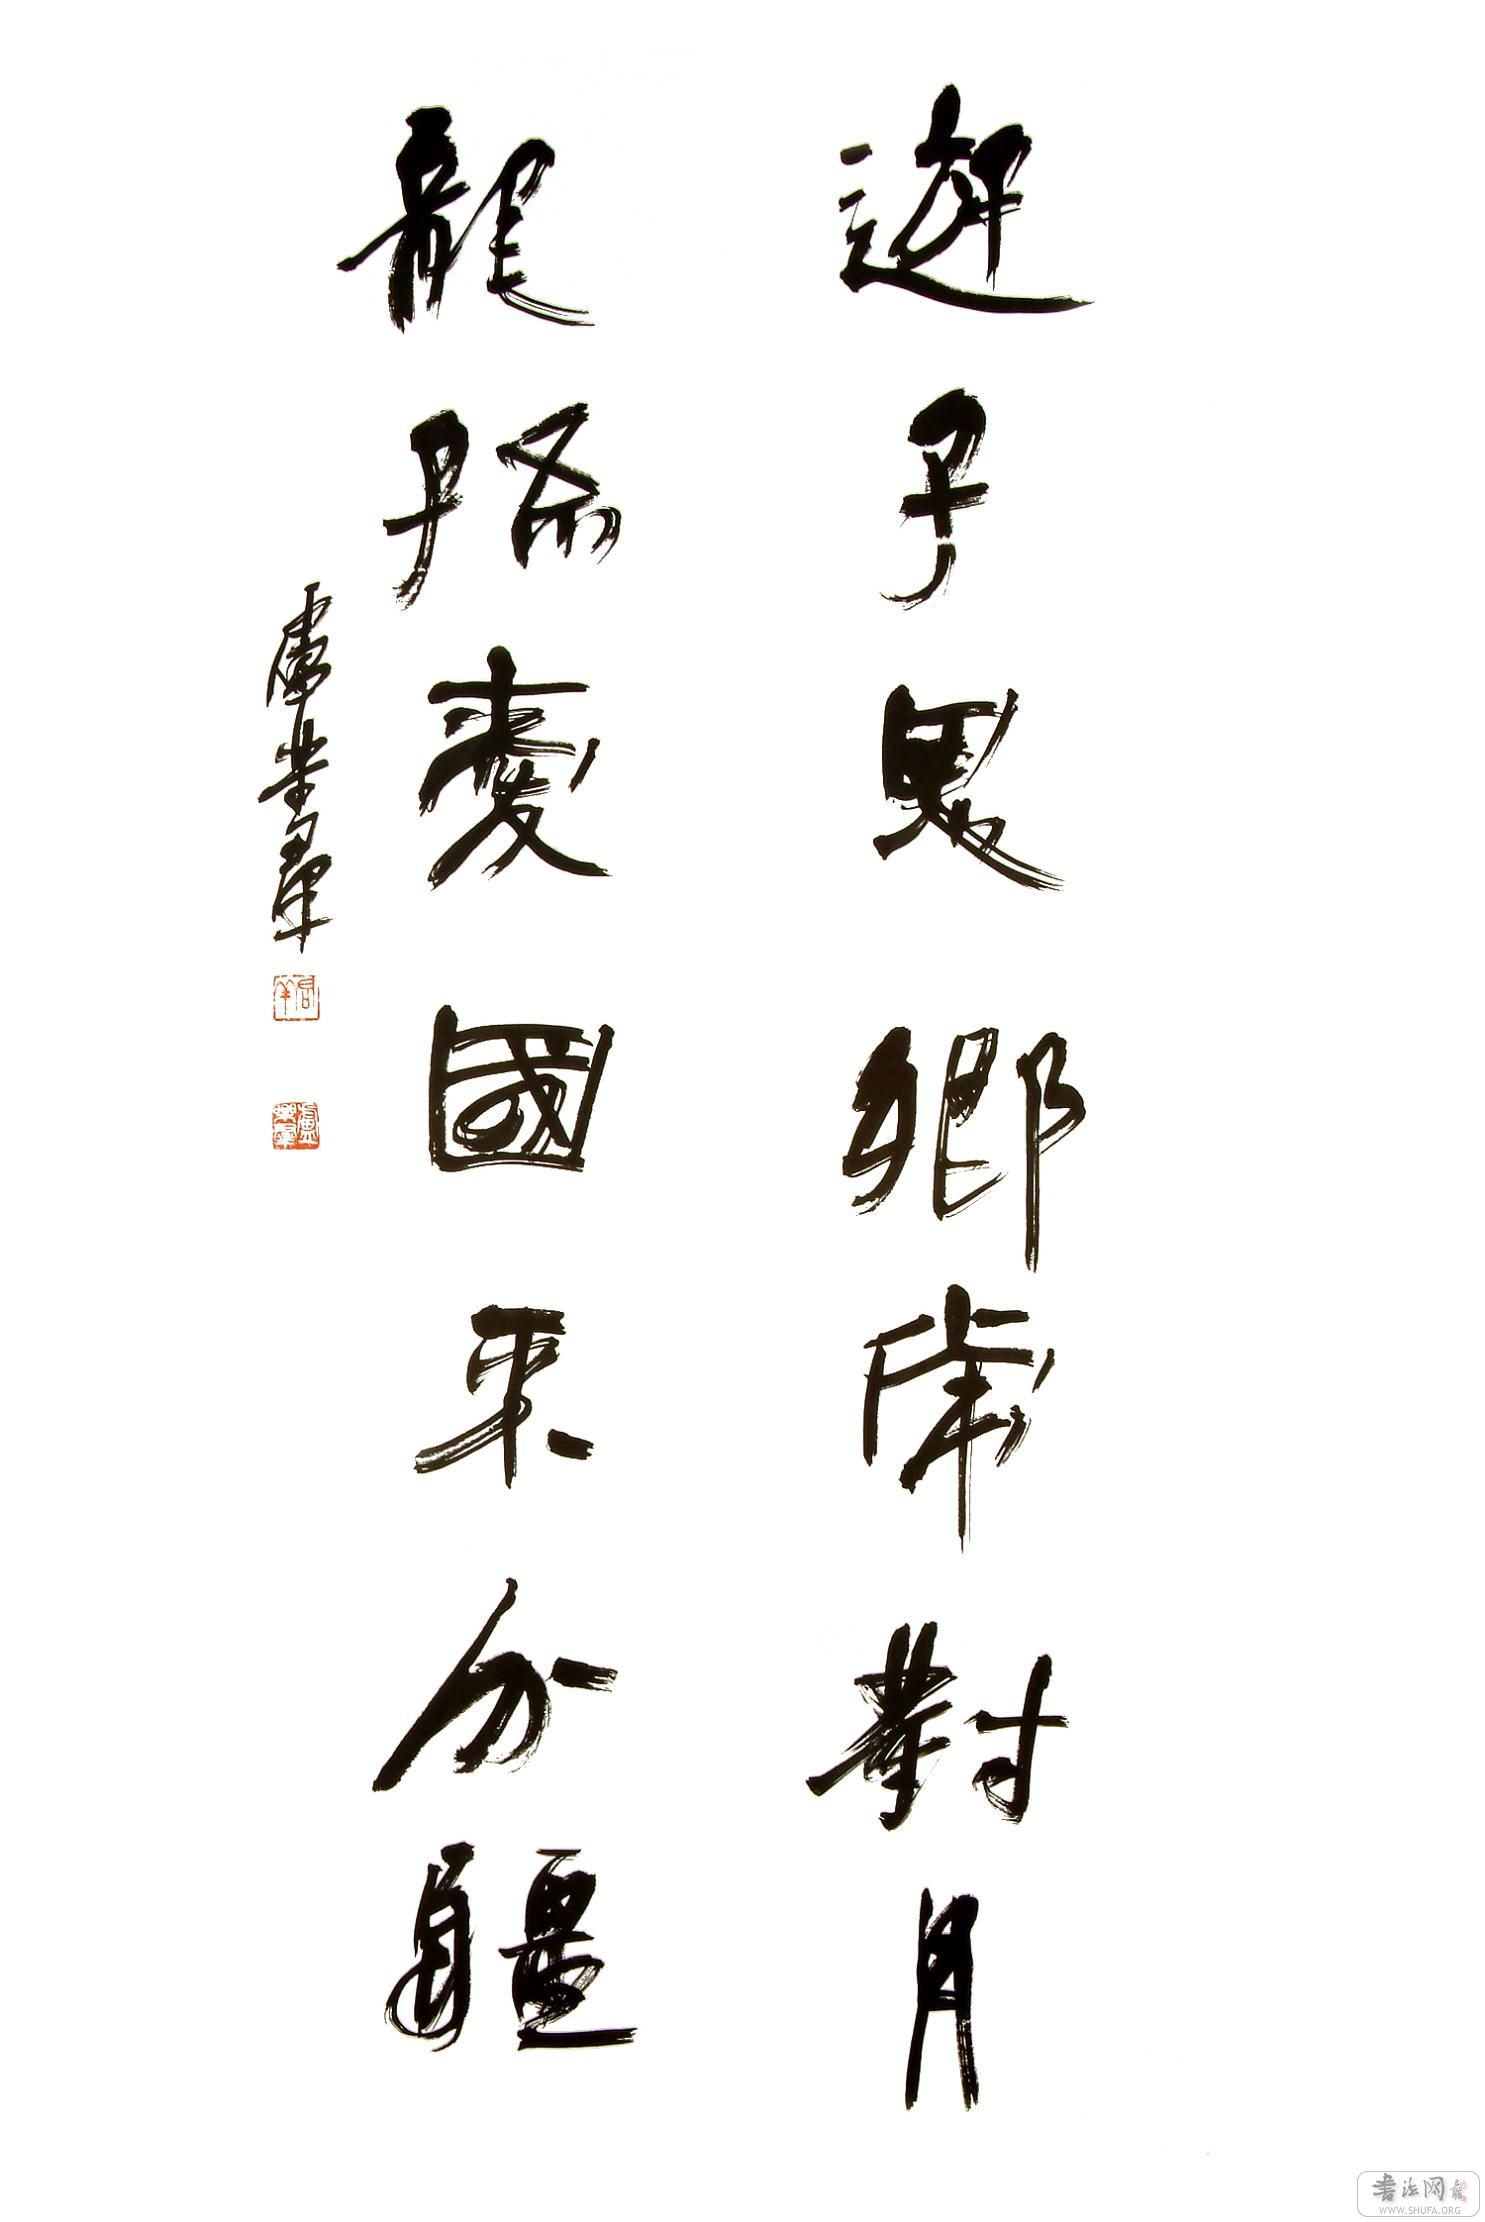 遊子思鄉常對月
龍孫愛國不分疆
盧業羣
書法网
WWW.SHUFA.ORG